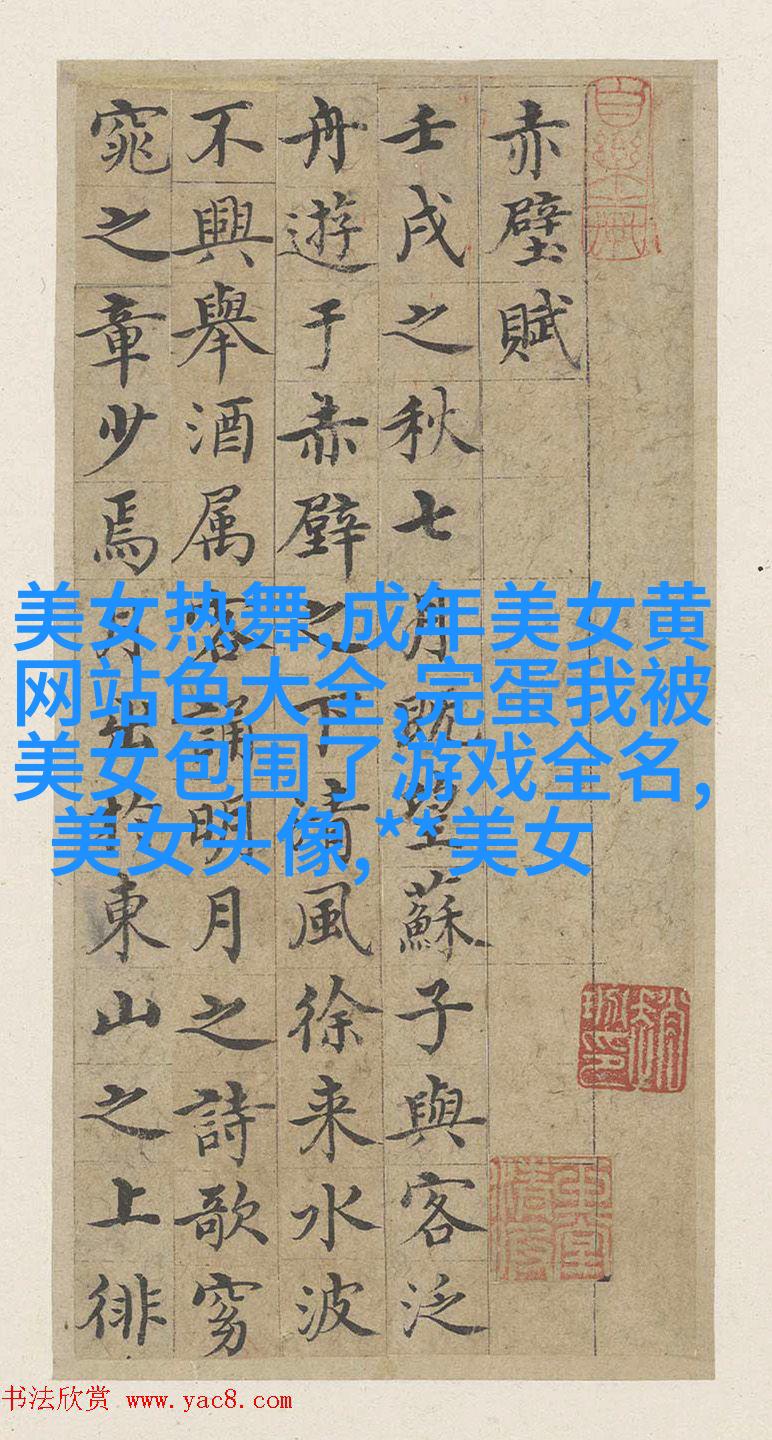 赤壁賦
壬戌之秋七月既望蘇子與客泛
舟遊于赤壁之下清風徐来水波
不興舉酒属客誦明月之詩歌窈
窕之章少焉月出於東山之上徘
美女热舞,成年美女黄
网站色大全,完蛋我被
美女包围了游戏全名,
美女头像,**美女
书法欣赏 www.yac8.com